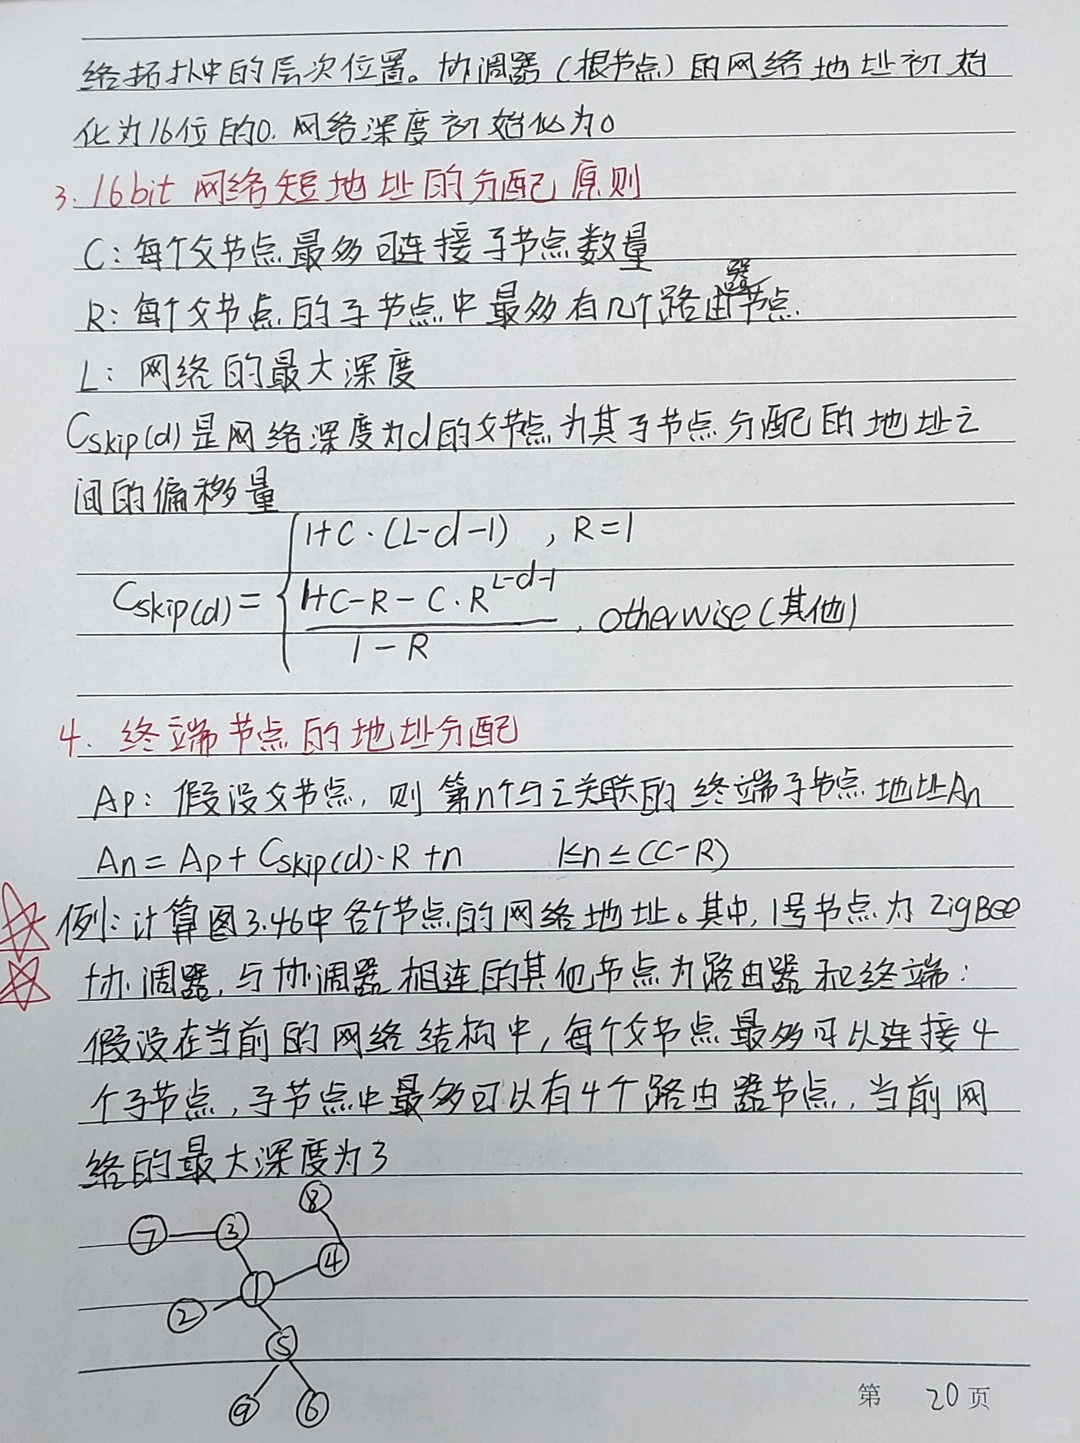 络拓扑中的层次位置。协调器(根节点)的网络地址初始
化为16位的0.网络深度初始化为0
3.16bit网络短地址的分配原则
C:每个父节点最多可连接子节点数量
器
R:每个父节点的子节点中最多有几个路由节点.
L:网络的最大深度
Cskip(d)是网络深度为d的父节点为其子节点分配的地址之
间的偏移量
1+C·(L-d-1) , R=1
Cskip(d)= { 1+C-R-C·R^L-d-1
1-R , otherwise(其他)
4. 终端节点的地址分配
Ap:假设父节点,则第n个与之关联的终端子节点地址An
An=Ap+Cskip(d)·R+n 1≤n≤(C-R)
例:计算图3.46中各个节点的网络地址。其中,1号节点为ZigBee
协调器,与协调器相连的其他节点为路由器和终端:
假设在当前的网络结构中,每个父节点最多可以连接4
个子节点,子节点中最多可以有4个路由器节点,当前网
络的最大深度为3
⑧
⑦ ③
④
①
②
⑤
⑨ ⑥
第 20页